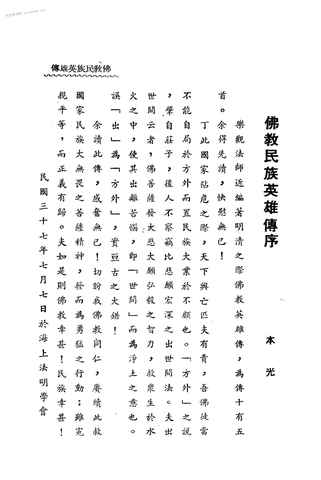 佛教民族英雄傳
佛教民族英雄傳序
本光
樂觀法師近編著明清之際佛教英雄傳，為傳十有五
首。余得先讀，快慰無已！
丁此國家阽危之際，天下興亡匹夫有責，吾佛徒當
不能自局於方外而置民族大業於不顧也。「方外」之說
，肇自莊子，後人不察竊比悉餬宏深之出世間法。夫出
世間云者，佛菩薩發大悲大願弘毅之智力，救眾生於水
火之中，使其出離苦惱，即「世間」而為淨土之意也。
誤「出」為「方外」，實亘古之大錯！
余讀此傳，感奮無已！切盼我佛教同仁，賡續此救
國家民族大無畏之菩薩精神，發而為勇猛之行動；雖冤
親平等，而正義有歸。夫如是則佛教幸甚！民族幸甚！
民國三十七年七月七日於海上法明學會